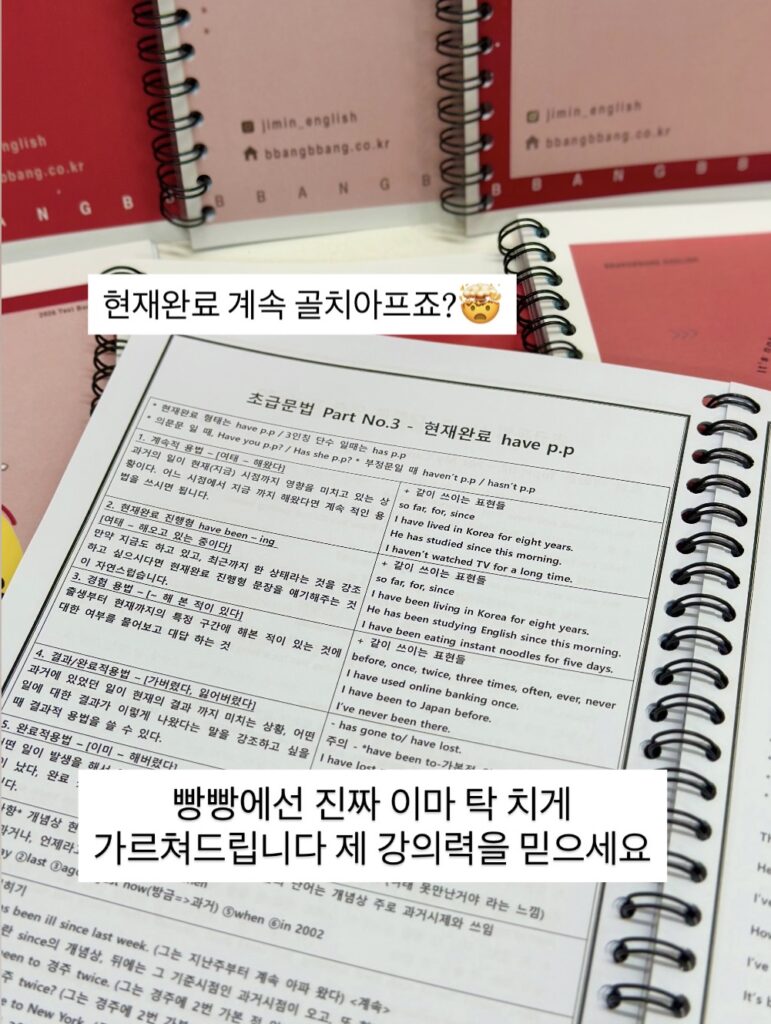 nglish
bbang.co.kr
A N G B
jimin_english
bbangbbang.co.kr
B B A N G B
jimin_english
bbangbbang.co.kr
B B A N G B B
현재완료 계속 골치아프죠?🤯
초급문법 Part No.3 - 현재완료 have p.p
* 현재완료 형태는 have p.p / 3인칭 단수 일때는 has p.p
* 의문문 일 때, Have you p.p? / Has she p.p? * 부정문일 때 haven't p.p / hasn't p.p
1. 계속적 용법 – [여태 – 해왔다]
과거의 일이 현재(지금) 시점까지 영향을 미치고 있는 상
황이다. 어느 시점에서 지금 까지 해왔다면 계속 적인 용
법을 쓰시면 됩니다.
+ 같이 쓰이는 표현들
so far, for, since
I have lived in Korea for eight years.
He has studied since this morning.
I haven't watched TV for a long time.
2. 현재완료 진행형 have been – ing
[여태 – 해오고 있는 중이다]
만약 지금도 하고 있고, 최근까지 한 상태라는 것을 강조
하고 싶으시다면 현재완료 진행형 문장을 얘기해주는 것
이 자연스럽습니다.
+ 같이 쓰이는 표현들
so far, for, since
I have been living in Korea for eight years.
He has been studying English since this morning.
I have been eating instant noodles for five days.
3. 경험 용법 – [– 해 본 적이 있다]
출생부터 현재까지의 특정 구간에 해본 적이 있는 것에
대한 여부를 물어보고 대답 하는 것
+ 같이 쓰이는 표현들
before, once, twice, three times, often, ever, never
I have used online banking once.
I have been to Japan before.
I've never been there.
4. 결과/완료적용법 – [가버렸다, 잃어버렸다]
과거에 있었던 일이 현재의 결과 까지 미치는 상황, 어떤
일에 대한 결과가 이렇게 나왔다는 말을 강조하고 싶을
때 결과적 용법을 쓸 수 있다.
- has gone to/ have lost.
주의 - *have been to-가본적
I have lost
5. 완료적용법 – [이미 – 해버렸다]
어떤 일이 발생을 해서
이 났다, 완료
빵빵에선 진짜 이마 탁 치게
가르쳐드립니다 제 강의력을 믿으세요
* 개념상 현
②last ③ago now(방금=>과거) ⑤when ⑥in 2002
단어는 개념상 주로 과거시제와 쓰임
못만난거야 라는 느낌)
has been ill since last week. (그는 지난주부터 계속 아파 왔다) <계속>
since의 개념상, 뒤에는 그 기준시점인 과거시점이 오고,
been to 경주 twice. (그는 경주에 2번 가본 적
twice? (그는 경주에 2번 가본
to New York.
I've
How
I've
It's b